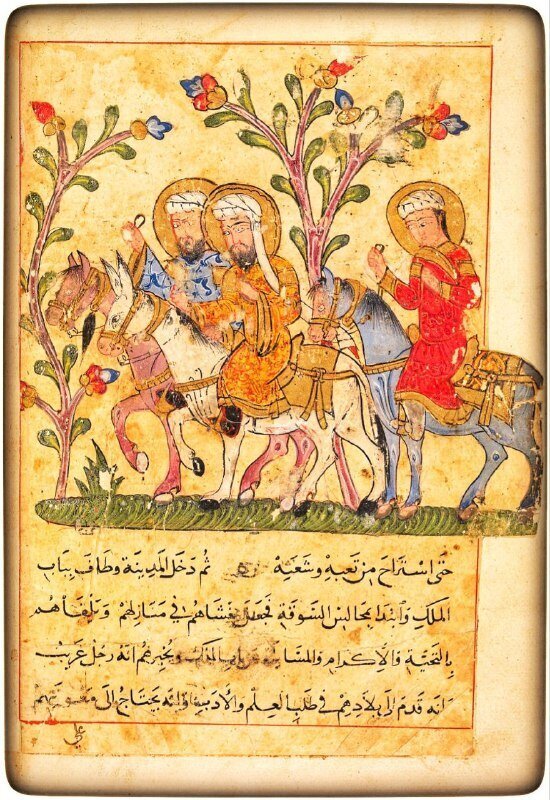 حتى استراح من تعبه وشعثه ثم دخل المدينة وطاف بباب
الملك وابتدا بمجالس السوقة فجعل يغشاهم في منازلهم ويلقاهم
بالتحية والاكرام الملك ويخبرهم انه رجل غريب
انه قدم الى بلادهم في طلب العلم والادب وانه يحتاج الى معونتهم